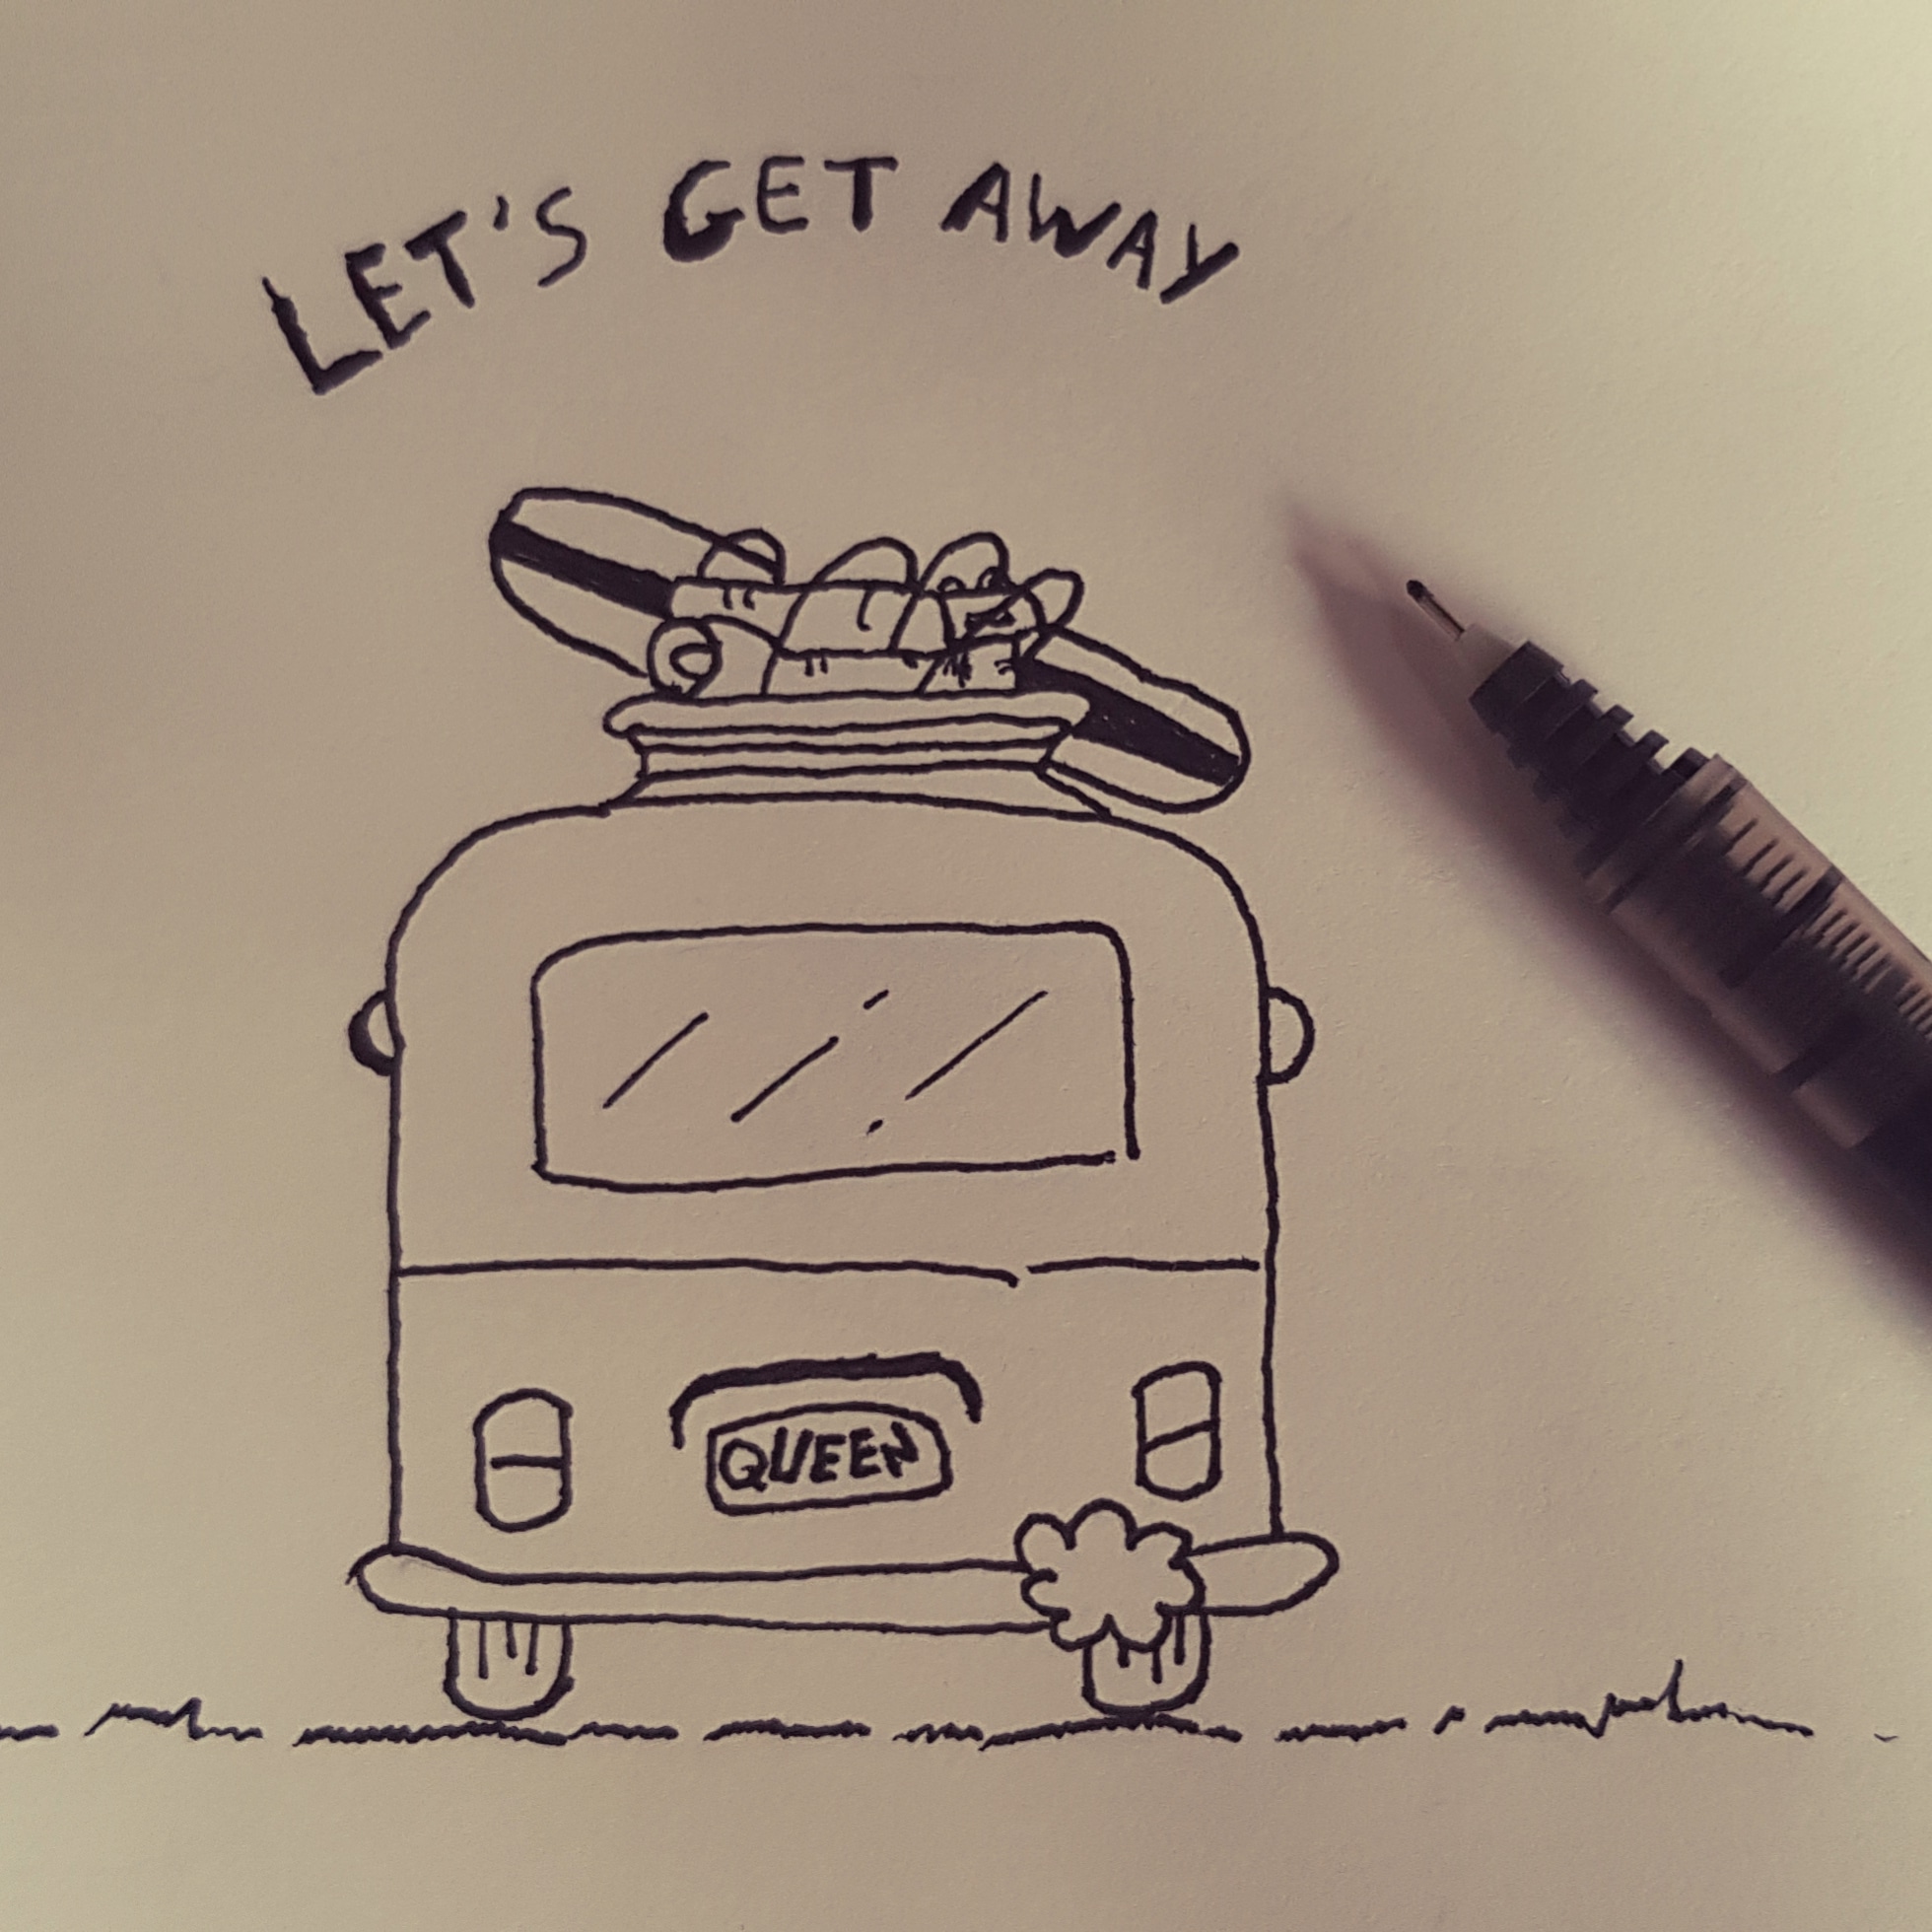 LET'S GET AWAY
QUEEN